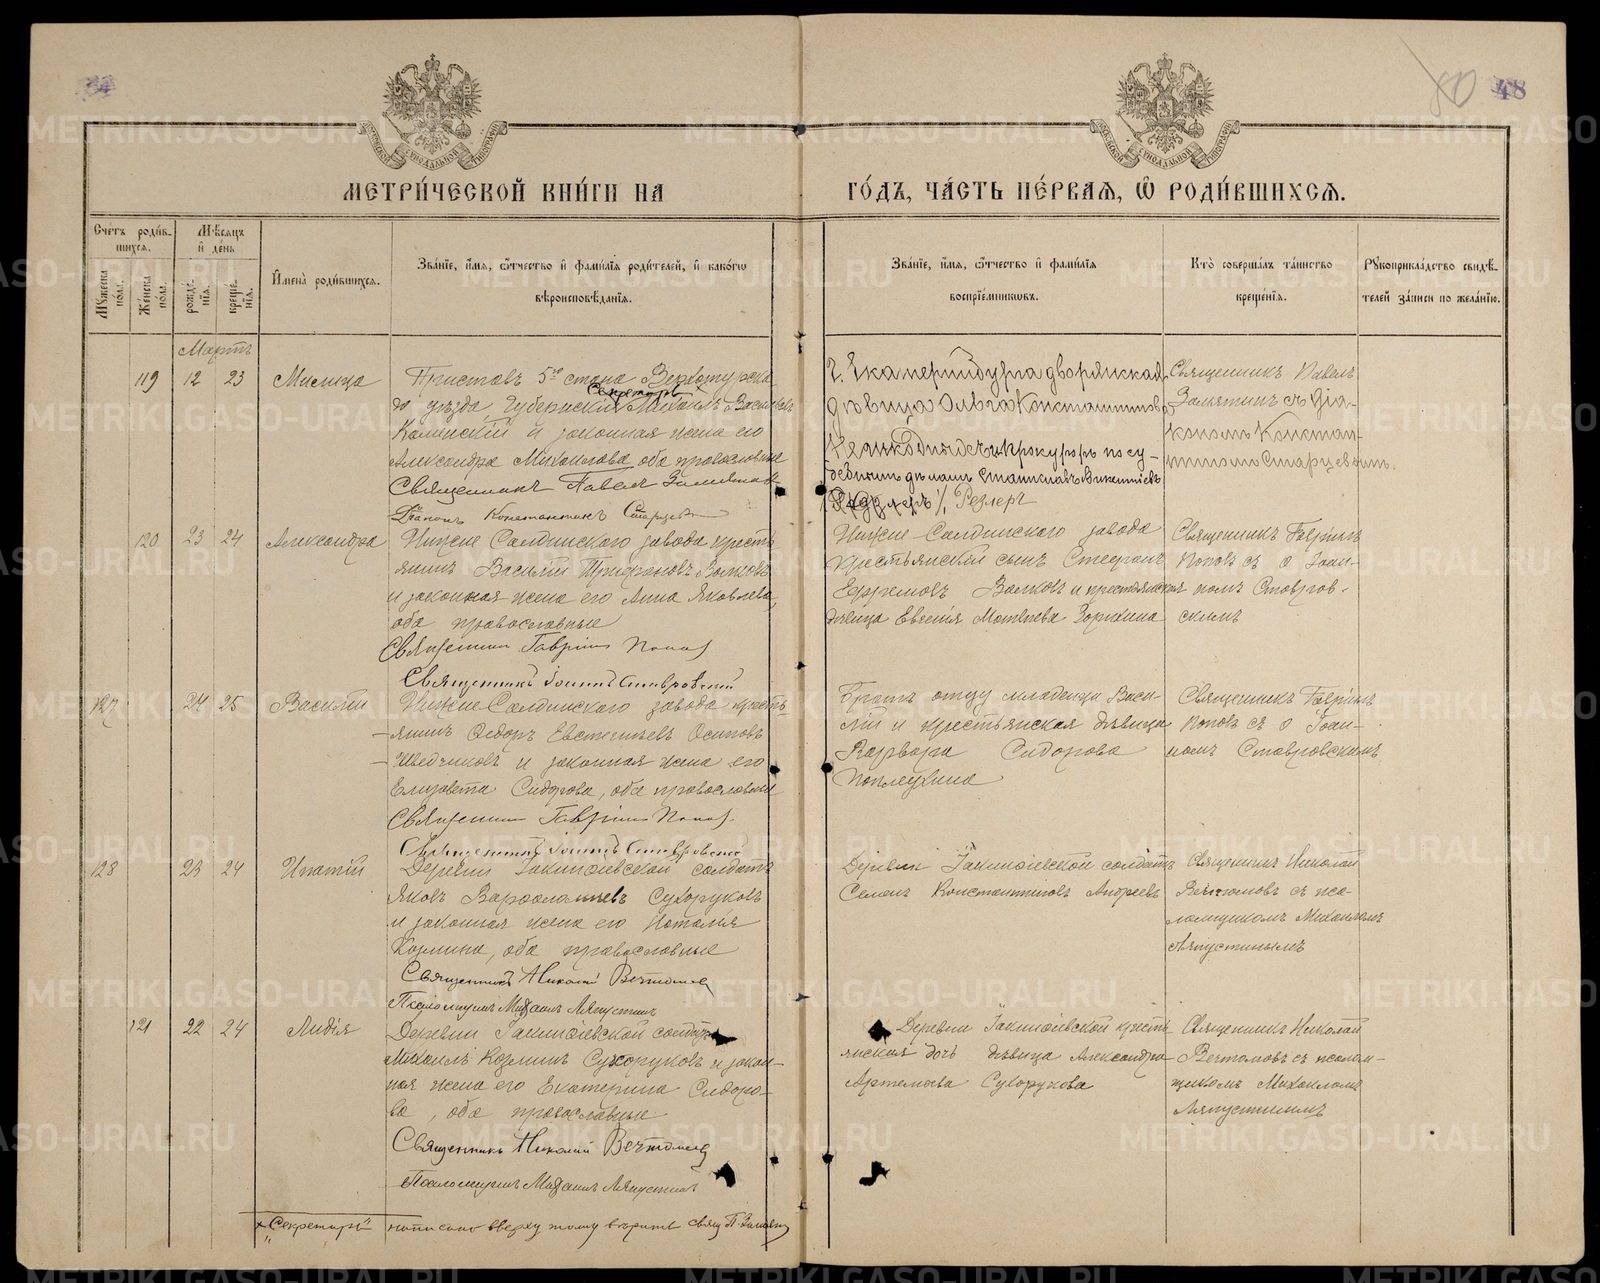 48
80
МЕТРИ́ЧЕСКОЙ КНИ́ГИ НА
ГО́ДЪ, ЧА́СТЬ ПЕ́РВАЯ, Ѡ҆ РОДИ́ВШИХСЯ.
Сче́тъ роди́вшихся.
Мꙋ́жеска по́ла.
Же́нска по́ла.
Мѣ́сяцъ и҆ де́нь
рожде́нїя.
креще́нїя.
И҆мена̀ роди́вшихся.
Зва́нїе, и҆́мя, ѻ҆́тчество и҆ фами́лїя роди́телей, и҆ како́гѡ
вѣроисповѣ́данїя.
Зва́нїе, и҆́мя, ѻ҆́тчество и҆ фами́лїя
воспрїе́мникѡвъ.
Кто̀ соверша́лъ та́инство
креще́нїя.
Рꙋкоприкла́дство свидѣ́телей за́писи по жела́нїю.
Мартъ
119 12 23 Милица
Приставъ 5го стана Верхотурска-
го уѣзда, Губернскій Секретарь Михаилъ Васильевъ
Калинскій и законная жена его
Александра Михайлова, оба православные
Священникъ Павелъ Замятинъ
Діаконъ Константинъ Старцевъ
г. Екатеринбурга дворянская
дѣвица Ольга Константинова
и Прокуроръ по су-
дебнымъ дѣламъ Станиславъ Викентіевъ
Резлеръ
Священникъ Павелъ
Замятинъ съ діа-
кономъ Констан-
тиномъ Старцевымъ.
120 23 24 Александра
Нижне-Салдинскаго завода крестья-
нинъ Василій Трифоновъ Волковъ
и законная жена его Анна Яковлева,
оба православные
Священникъ Гавріилъ Поповъ
Священникъ Іоаннъ Ставровскій
Нижне-Салдинскаго завода
крестьянскій сынъ Стефанъ
Ефремовъ Волковъ и крестьянская
дѣвица Евгенія Матвѣева Зорихина
Священникъ Гавріилъ
Поповъ съ о Іоан-
номъ Ставров-
скимъ
127 24 25 Василій
Нижне-Салдинскаго завода кресть-
янинъ Ѳедоръ Евстегнѣевъ Осиповъ
Шведчиковъ и законная жена его
Елизавета Сидорова, оба православные
Священникъ Гавріилъ Поповъ
Священникъ Іоаннъ Ставровскій
Братъ отцу младенца Васи-
лій и крестьянская дѣвица
Варвара Сидорова
Поплеухина
Священникъ Гавріилъ
Поповъ съ о Іоан-
номъ Ставровскимъ
128 23 24 Ипатій
Деревни Іакинѳіевской солдатъ
Яковъ Варѳоломеевъ Сухоруковъ
и законная жена его Наталья
Козмина, оба православные
Священникъ Николай Вечтомовъ
Псаломщикъ Михаилъ Ляпустинъ
Деревни Іакинѳіевской солдатъ
Семенъ Константиновъ Андреевъ
Священникъ Николай
Вечтомовъ съ пса-
ломщикомъ Михаиломъ
Ляпустинымъ
121 22 24 Лидія
Деревни Іакинѳіевской солдатъ
Михаилъ Козминъ Сухоруковъ и закон-
ная жена его Екатерина Сидоро-
ва, оба православные
Священникъ Николай Вечтомовъ
Псаломщикъ Михаилъ Ляпустинъ
Деревни Іакинѳіевской кресть-
янская дочь дѣвица Александра
Артемьева Сухорукова
Священникъ Николай
Вечтомовъ съ псалом-
щикомъ Михаиломъ
Ляпустинымъ
× „Секретарь" написано вверху тому вѣрить свящ. П. Замятинъ
METRIKI.GASO-URAL.RU